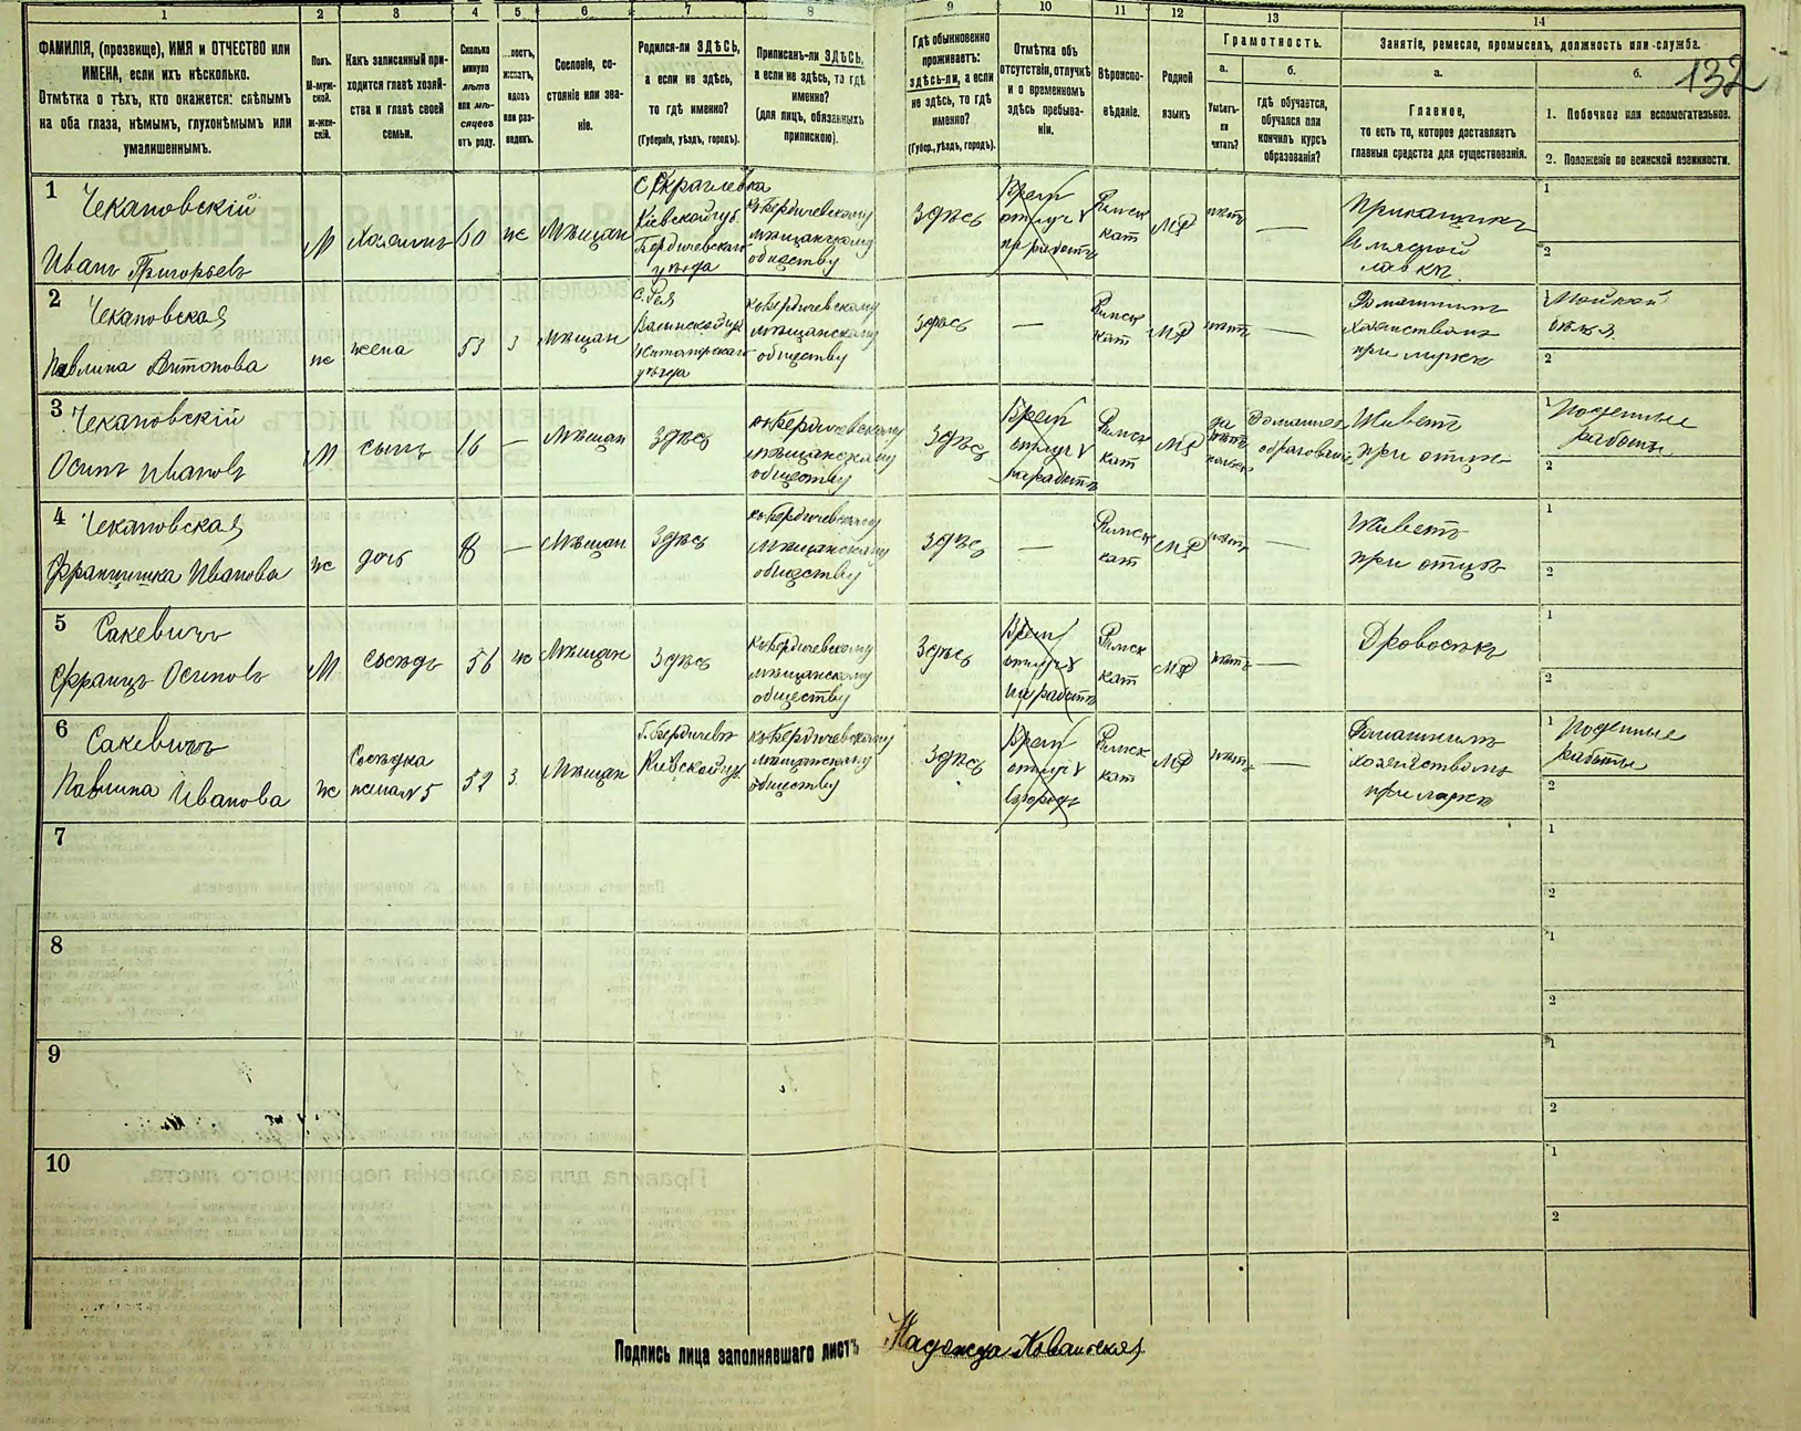 1 2 3 4 5 6 7 8 9 10 11 12 13 14
ФАМИЛІЯ, (прозвище), ИМЯ и ОТЧЕСТВО или
ИМЕНА, если ихъ нѣсколько.
Отмѣтка о тѣхъ, кто окажется: слѣпымъ
на оба глаза, нѣмымъ, глухонѣмымъ или
умалишеннымъ.
Полъ.
М-муж-
ской.
ж-жен-
скій.
Какъ записанный при-
ходится главѣ хозяй-
ства и главѣ своей
семьи.
Сколько
минуло
лѣтъ
или мѣ-
сяцевъ
отъ роду.
...постъ,
женатъ,
вдовъ
или раз-
веденъ.
Сословіе, со-
стояніе или зва-
ніе.
Родился-ли ЗДѢСЬ,
а если не здѣсь,
то гдѣ именно?
(Губернія, уѣздъ, городъ).
Приписанъ-ли ЗДѢСЬ,
а если не здѣсь, то гдѣ
именно?
(для лицъ, обязанныхъ
припискою).
Гдѣ обыкновенно
проживаетъ:
здѣсь-ли, а если
не здѣсь, то гдѣ
именно?
(Губер., уѣздъ, городъ).
Отмѣтка объ
отсутствіи, отлучкѣ
и о временномъ
здѣсь пребыва-
ніи.
Вѣроиспо-
вѣданіе.
Родной
языкъ
Грамотность.
а.
Умѣетъ-
ли
читать?
б.
гдѣ обучается,
обучался или
кончилъ курсъ
образованія?
Занятіе, ремесло, промыселъ, должность или служба.
а.
Главное,
то есть то, которое доставляетъ
главныя средства для существованія.
б.
132
1. Побочное или вспомогательное.
2. Положеніе по воинской повинности.
1 Чекановскій
Иванъ Григорьевъ
М
Хозяинъ
60
ж
Мѣщан
с Скраглевка
Кіевской губ.
Бердичевскаго
уѣзда
къ Бердичевскому
мѣщанскому
обществу
Здѣсь
Врем
отлуч
на работѣ
Римск
кат
нѣтъ
—
Прикащикъ
в мясной
лавкѣ
1
2
2 Чекановская
Павлина Антонова
ж
жена
53
з
Мѣщан
с. Рея
Волынской губ
Житомирскаго
уѣзда
къ Бердичевскому
мѣщанскому
обществу
здѣсь
—
Римск
кат
нѣтъ
—
Домашнимъ
хозяйствомъ
при мужѣ
1 Мойкой
бѣлья
2
3 Чекановскій
Осипъ Ивановъ
М
сынъ
16
—
Мѣщан
Здѣсь
къ Бердичевскому
мѣщанскому
обществу
Здѣсь
Врем
отлуч
на работѣ
Римск
кат
да
Домашнее
образованіе
Живетъ
при отцѣ
1 Поденные
работы
2
4 Чекановская
Францишка Иванова
ж
дочь
8
—
Мѣщан
Здѣсь
къ Бердичевскому
мѣщанскому
обществу
здѣсь
—
Римск
кат
нѣтъ
—
Живетъ
при отцѣ
1
2
5 Сакевичъ
Францъ Осиповъ
М
сосѣдъ
56
ж
Мѣщан
Здѣсь
къ Бердичевскому
мѣщанскому
обществу
Здѣсь
Врем
отлуч
на работѣ
Римск
кат
нѣтъ
—
Дровосѣкъ
1
2
6 Сакевичъ
Павлина Иванова
ж
Сосѣдка
жена № 5
52
з
Мѣщан
г. Бердичевъ
Кіевской губ
къ Бердичевскому
мѣщанскому
обществу
Здѣсь
Врем
отлуч
Римск
кат
нѣтъ
—
Домашнимъ
хозяйствомъ
при мужѣ
1 Поденные
работы
2
7 1
2
8 1
2
9 1
2
10 1
2
Подпись лица заполнявшаго листъ Надежда